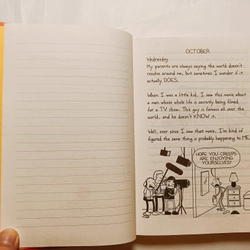 OCTOBER
Wednesday
My parents are always saying the world doesn't
revolve around me, but sometimes I wonder if it
actually DOES.
When I was a little kid, I saw this movie about
a man whose whole life is secretly being filmed
for a T.V. show. This guy is famous all over the
world, and he doesn't KNOW it.
Well, ever since I saw that movie, I've kind of
figured the same thing is probably happening to ME.
HOPE YOU CREEPS
ARE ENJOYING
YOURSELVES!